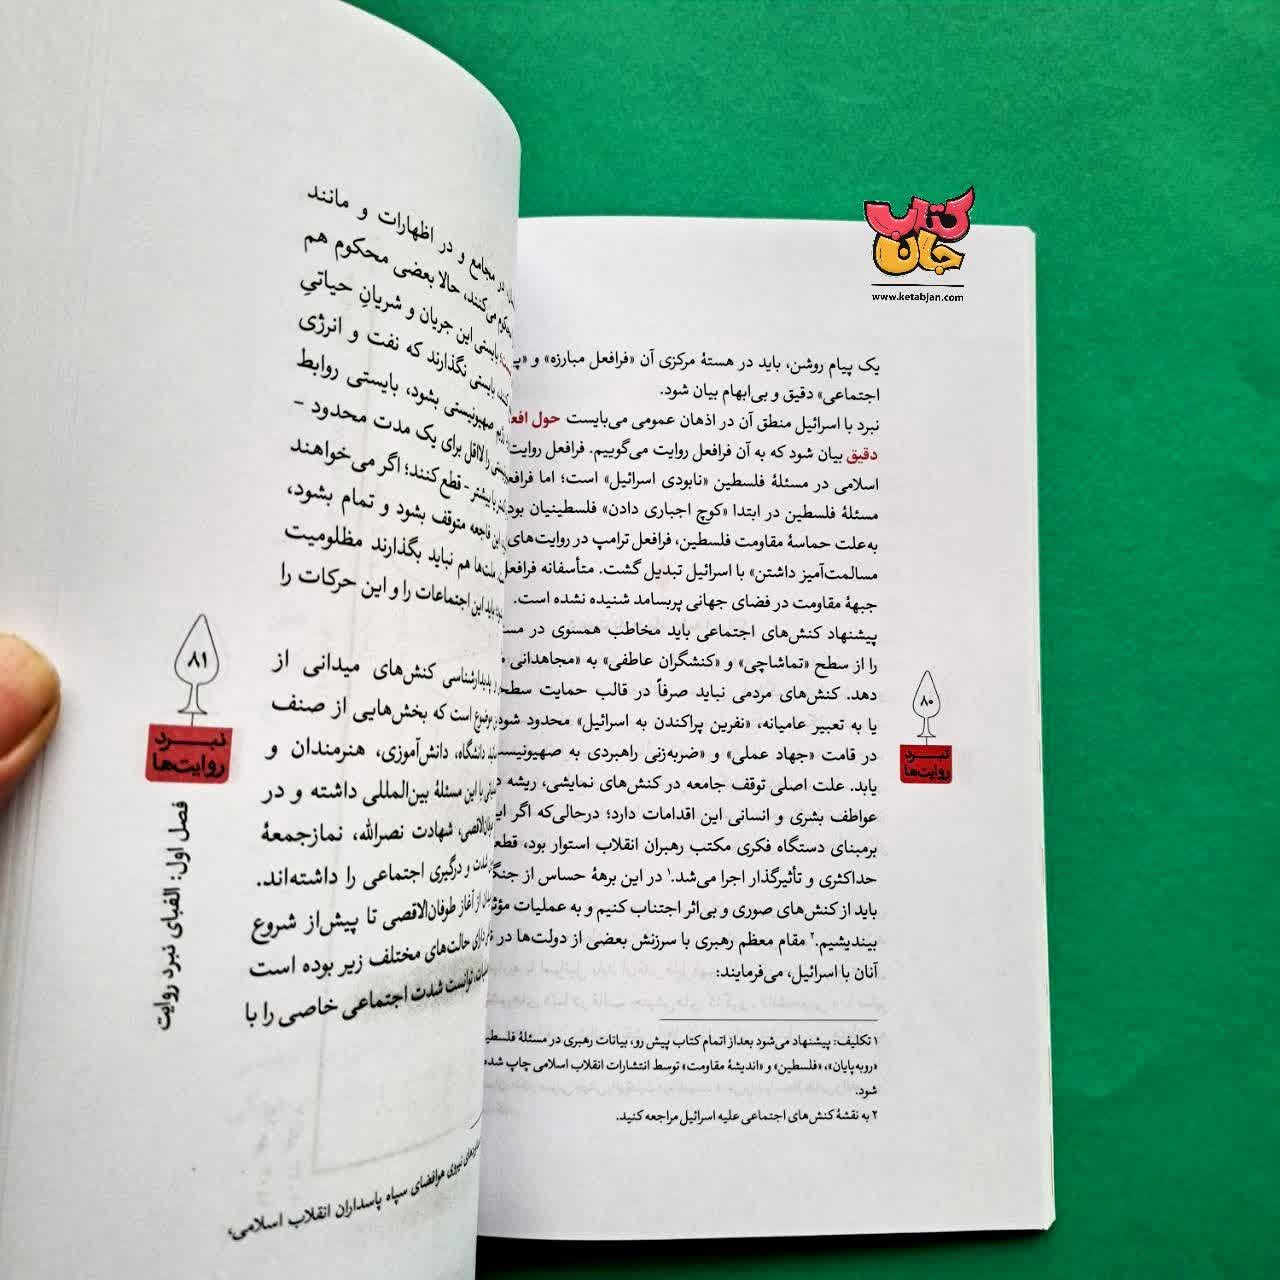 کتاب
جان
www.ketabjan.com
یک پیام روشن، باید در هستهٔ مرکزی آن «فرافعل مبارزه» و
اجتماعی» دقیق و بی‌ابهام بیان شود.
نبرد با اسرائیل منطق آن در اذهان عمومی می‌بایست حول
دقیق بیان شود که به آن فرافعل روایت می‌گوییم. فرافعل روایت
اسلامی در مسئلهٔ فلسطین «نابودی اسرائیل» است؛ اما
مسئلهٔ فلسطین در ابتدا «کوچ اجباری دادن» فلسطینیان
به‌علت حماسهٔ مقاومت فلسطین، فرافعل ترامپ در روایت‌های
مسالمت‌آمیز داشتن» با اسرائیل تبدیل گشت. متأسفانه فرافعل
جبههٔ مقاومت در فضای جهانی پربسامد شنیده نشده است.
پیشنهاد کنش‌های اجتماعی باید مخاطب همسوی در
را از سطح «تماشاچی» و «کنشگران عاطفی» به «مجاهدانی
دهد. کنش‌های مردمی نباید صرفاً در قالب حمایت
یا به تعبیر عامیانه، «نفرین پراکندن به اسرائیل» محدود شود
در قامت «جهاد عملی» و «ضربه‌زنی راهبردی به
یابد. علت اصلی توقف جامعه در کنش‌های نمایشی، ریشه
عواطف بشری و انسانی این اقدامات دارد؛ درحالی‌که اگر
برمبنای دستگاه فکری مکتب رهبران انقلاب استوار بود،
حداکثری و تأثیرگذار اجرا می‌شد.۱ در این برههٔ حساس از
باید از کنش‌های صوری و بی‌اثر اجتناب کنیم و به عملیات
بیندیشیم.۲ مقام معظم رهبری با سرزنش بعضی از دولت‌ها در
آنان با اسرائیل، می‌فرمایند:
۱ تکلیف: پیشنهاد می‌شود بعداز اتمام کتاب پیش رو، بیانات رهبری در مسئلهٔ
«روبه‌پایان»، «فلسطین» و «اندیشهٔ مقاومت» توسط انتشارات انقلاب اسلامی چاپ
شود.
۲ به نقشهٔ کنش‌های اجتماعی علیه اسرائیل مراجعه کنید.
۸۰
نبرد
روایت‌ها
در مجامع و در اظهارات و مانند
می‌کنند، حالا بعضی محکوم هم
بایستی این جریان و شریانِ حیاتیِ
بایستی نگذارند که نفت و انرژی
صهیونیستی بشود، بایستی روابط
را لااقل برای یک مدت محدود -
بیشتر - قطع کنند؛ اگر می‌خواهند
این فاجعه متوقف بشود و تمام بشود،
ملت‌ها هم نباید بگذارند مظلومیت
باید این اجتماعات را و این حرکات را
پدیدارشناسی کنش‌های میدانی از
موضوع است که بخش‌هایی از صنف
دانشگاه، دانش‌آموزی، هنرمندان و
با این مسئلهٔ بین‌المللی داشته و در
شهادت نصرالله، نمازجمعهٔ
شدت و درگیری اجتماعی را داشته‌اند.
از آغاز طوفان‌الاقصی تا پیش‌از شروع
حالت‌های مختلف زیر بوده است
توانست شدت اجتماعی خاصی را با
نیروی هوافضای سپاه پاسداران انقلاب اسلامی،
۸۱
نبرد
روایت‌ها
فصل اول: الفبای نبرد روایت